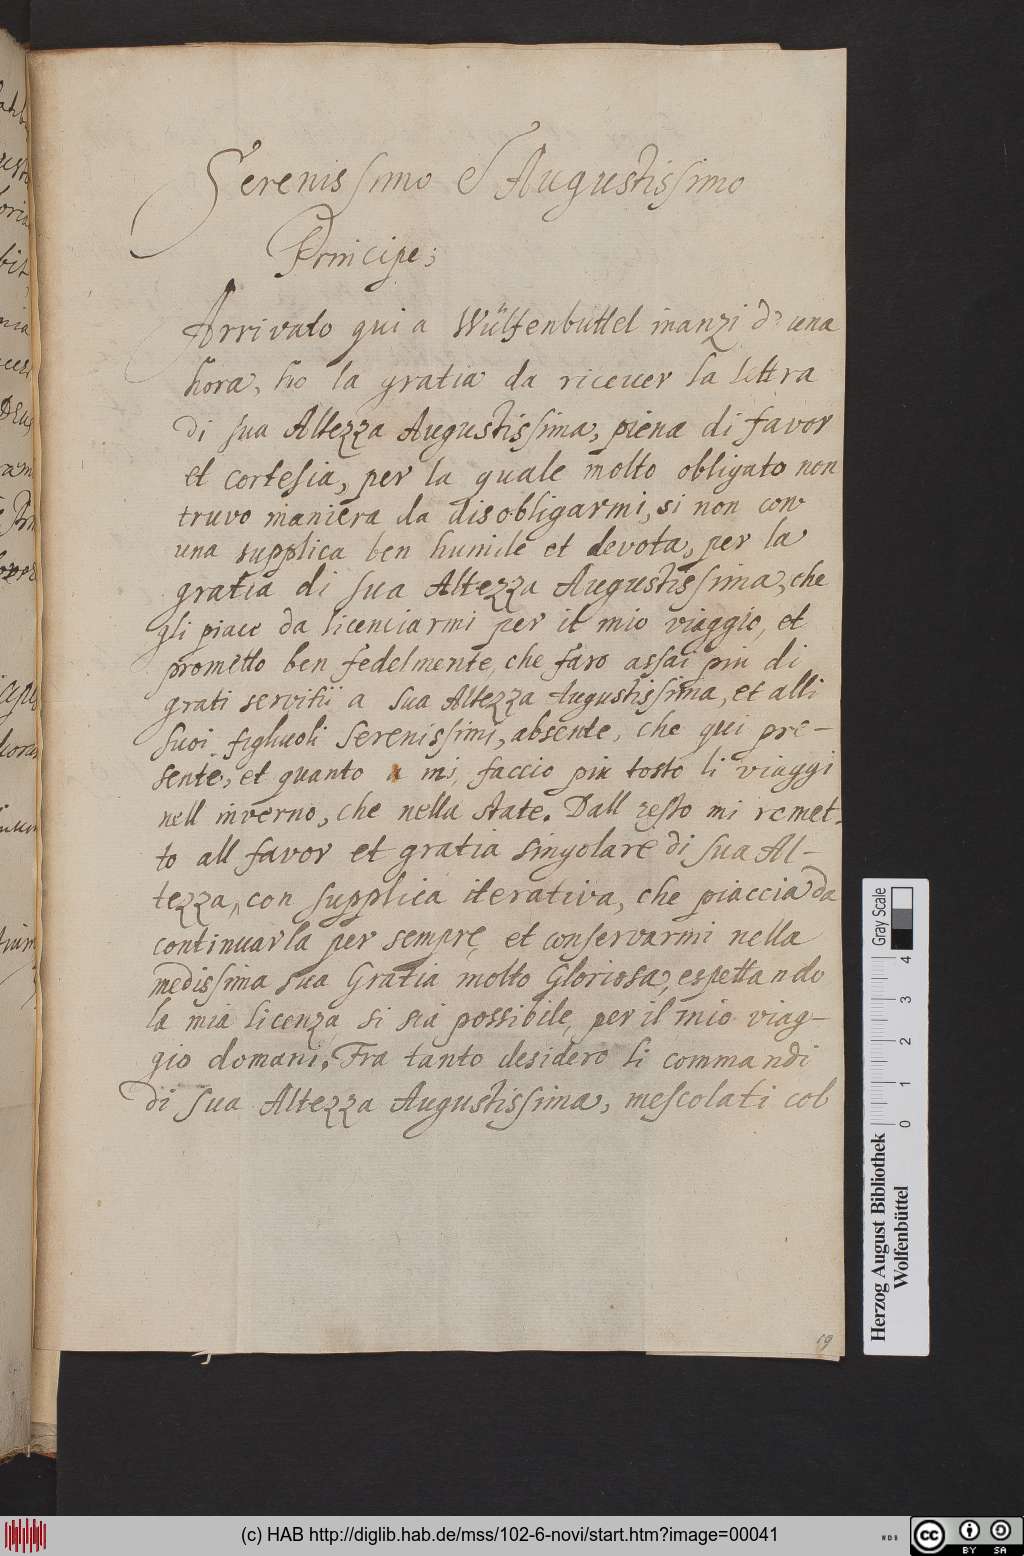 Serenissimo et Augustissimo
Principe;
Arrivato qui a Wülfenbuttel inanzi d' una
hora, ho la gratia da ricever la lettra
di sua Altezza Augustissima, piena di favor
et cortesia, per la quale molto obligato non
truvo maniera da disobligarmi, si non con
una supplica ben humile et devota, per la
gratia di sua Altezza Augustissima, che
gli piace da licenciarmi per il mio viaggio, et
prometto ben fedelmente, che faro assai piu di
grati servitii a sua Altezza Augustissima, et alli
suoi figliuoli Serenissimi, absente, che qui pre-
sente, et quanto a mi, faccio piu tosto li viaggi
nell inverno, che nella state. Dall resto mi remet-
to all favor et gratia singolare di sua Al-
tezza, con supplica iterativa, che piaccia da
continuarla per sempre, et conservarmi nella
medissima sua Gratia molto Gloriosa, espettando
la mia licenza, si sia possibile, per il mio viag-
gio domani. Fra tanto desidero li commandi
di sua Altezza Augustissima, mescolati col
19
Herzog August Bibliothek
Wolfenbüttel
0 1 2 3 4
Gray Scale
(c) HAB http://diglib.hab.de/mss/102-6-novi/start.htm?image=00041
WDB
cc BY SA